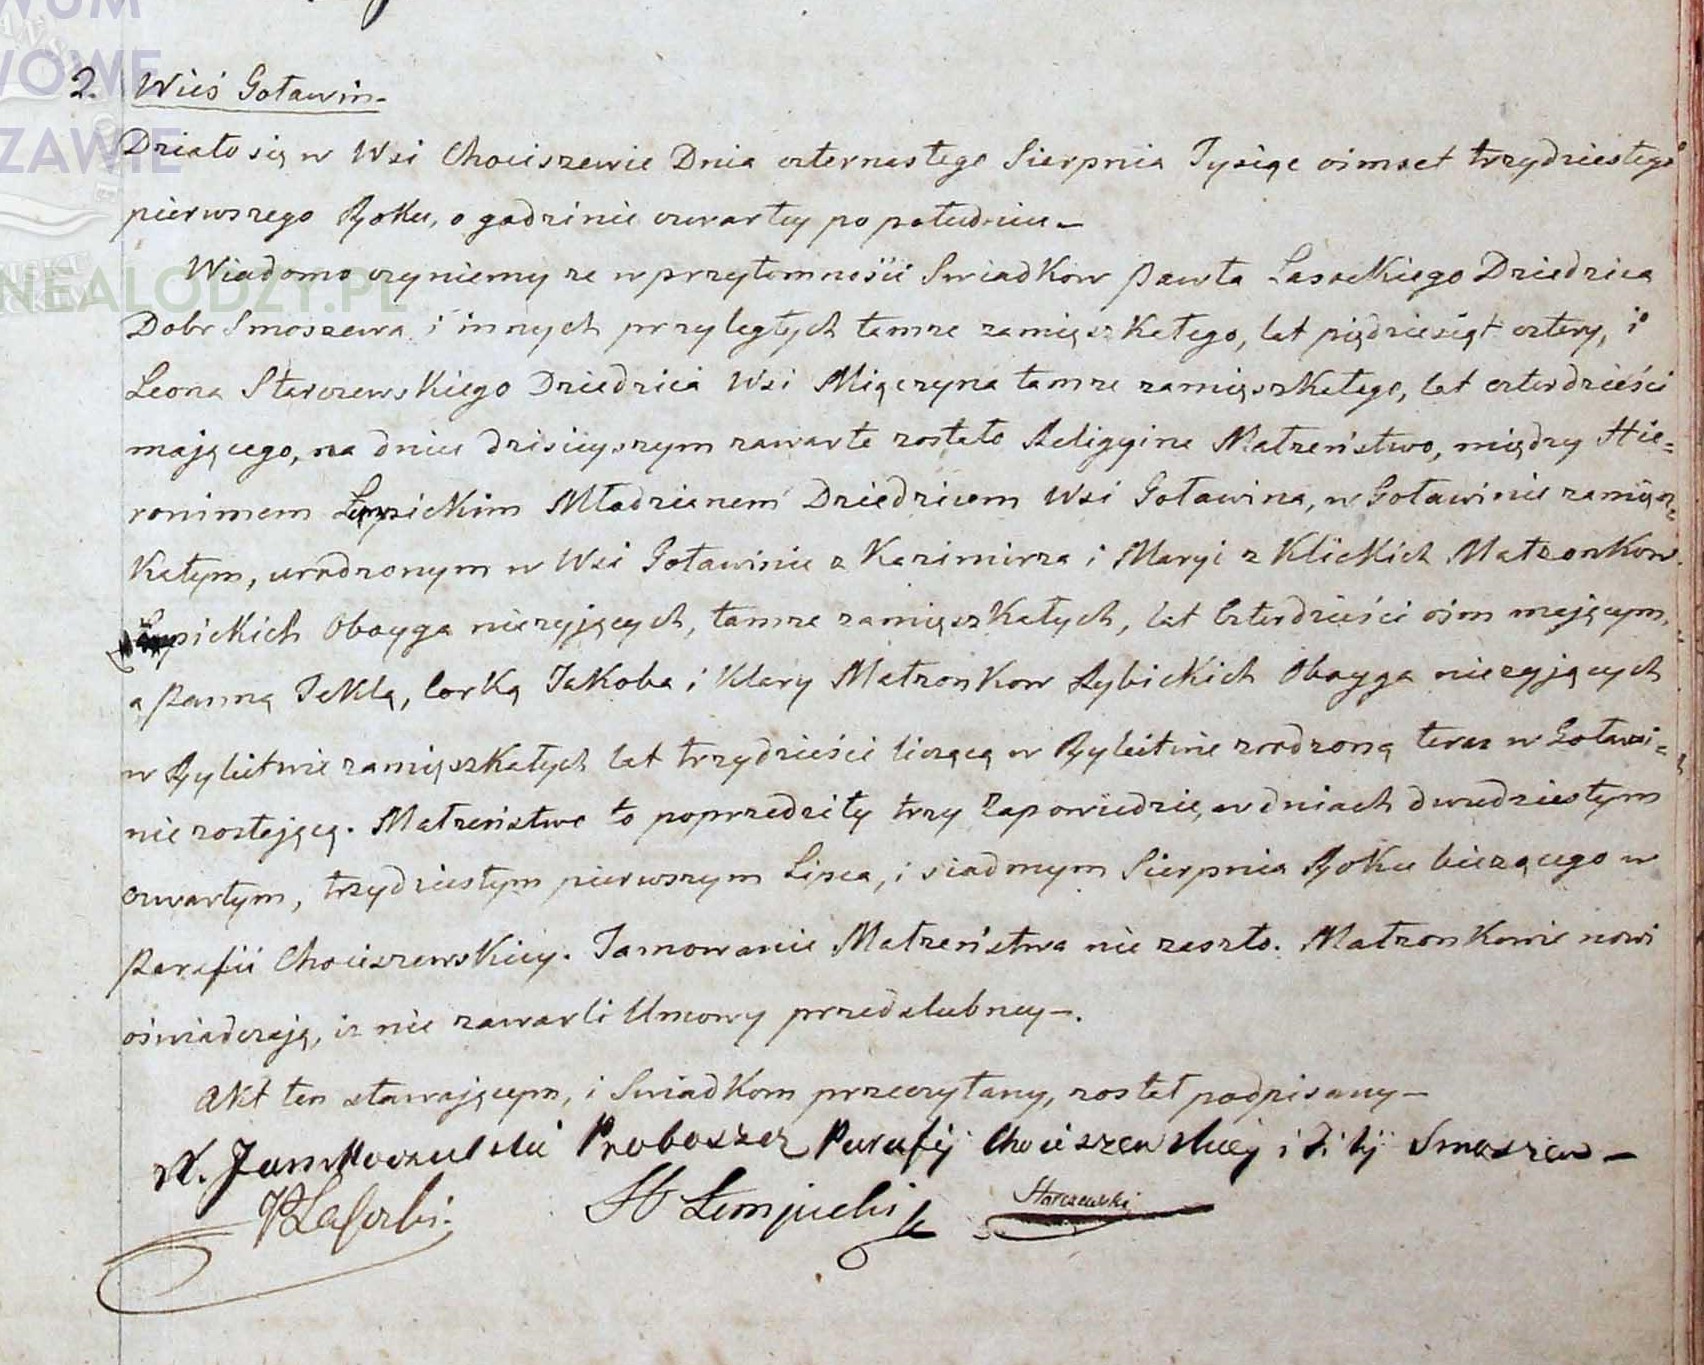 WUM
WOWE
ZAWIE
NEALODZY.PL
2. Wieś Goławin.
Działo się w Wsi Chociszewie Dnia czternastego Sierpnia Tysiąc ośmset trzydziestego
pierwszego Roku, o godzinie czwartey po południu –
Wiadomo czyniemy ze w przytomności Swiadkow Pawła Lasockiego Dziedzica
Dobr Smoszewa i innych przyległych tamze zamięszkałego, lat piędziesiąt cztery, i
Leona Starczewskiego Dziedzica Wsi Mięczyna tamze zamięszkałego, lat czterdzieści
mającego, na dniu dzisieyszym zawarte zostało Religyine Małzeństwo, między Hie=
ronimem Łempickim Młodzianem Dziedzicem Wsi Goławina, w Goławinie zamięsz=
kałym, urodzonym w Wsi Goławinie z Kazimirza i Maryi z Klickich Małzonkow
Łempickich Oboyga niezyjących, tamze zamięszkałych, lat Czterdzieści ośm mającym,
a Panną Teklą, Corką Jakoba i Klary Małzonkow Rybickich Oboyga niezyjących
w Rybitwie zamięszkałych lat trzydzieści liczącą w Rybitwie zrodzoną teraz w Goławi=
nie zostającą. Małzeństwo to poprzedziły trzy Zapowiedzie, w dniach dwudziestym
czwartym, trzydziestym pierwszym Lipca, i siodmym Sierpnia Roku bieżącego w
Parafii Chociszewskiey. Tamowanie Małzeństwa nie zaszło. Małzonkowie nowi
oświadczają, iz nie zawarli Umowy przedslubney –.
Akt ten stawającym, i Swiadkom przeczytany, został podpisany –
X. Jan Proboszcz Parafij Chociszewskiey i Smoszew –
P Lasocki.
H Łempicki
Starczewski